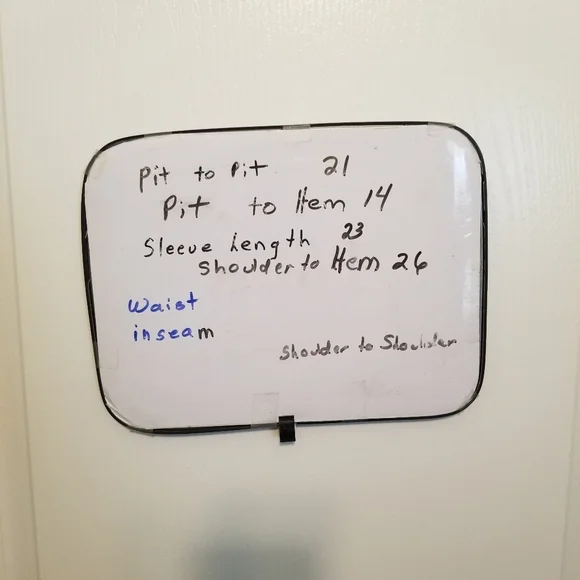 Pit to Pit 21
Pit to Hem 14
Sleeve Length 23
Shoulder to Hem 26
Waist
inseam
Shoulder to Shoulder